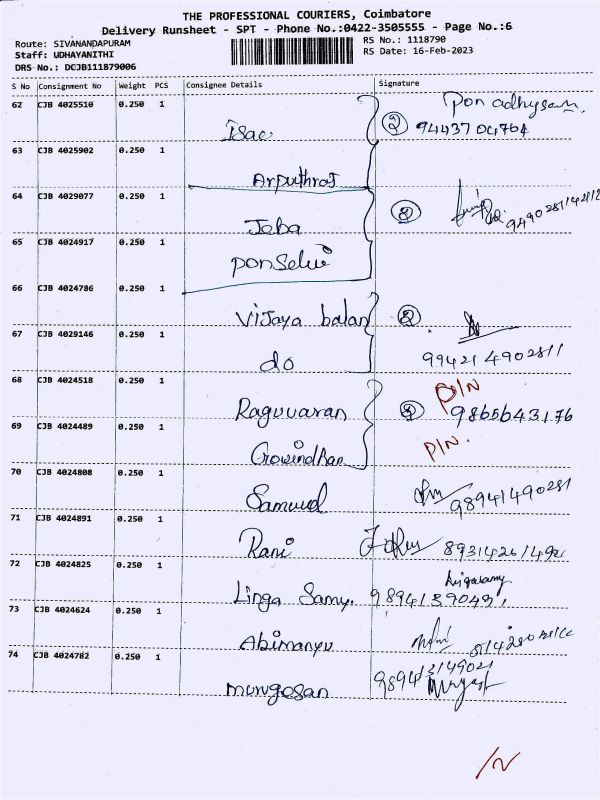 THE PROFESSIONAL COURIERS, Coimbatore
Delivery Runsheet - SPT - Phone No.:0422-3505555 - Page No.:6
Route: SIVANANDAPURAM
Staff: UDHAYANITHI
DRS No.: DCJB111879006
RS No.: 1118790
RS Date: 16-Feb-2023
S No Consignment No Weight PCS Consignee Details Signature
62 CJB 4025510 0.250 1 Isac 2 Pon 9443704764
63 CJB 4025902 0.250 1 Arputhraj
64 CJB 4029077 0.250 1 Jeba 2
65 CJB 4024917 0.250 1 Ponselvi
66 CJB 4024786 0.250 1 Vijaya balan 2
67 CJB 4029146 0.250 1 do 994214902811
68 CJB 4024518 0.250 1 Raguvaran 2 PIN 9865643176
69 CJB 4024489 0.250 1 Gowindhan PIN.
70 CJB 4024808 0.250 1 Samuvel 98941490281
71 CJB 4024891 0.250 1 Rani
72 CJB 4024825 0.250 1 Linga Samy. Lingasamy
73 CJB 4024624 0.250 1 Abimanyu
74 CJB 4024782 0.250 1 murugesan